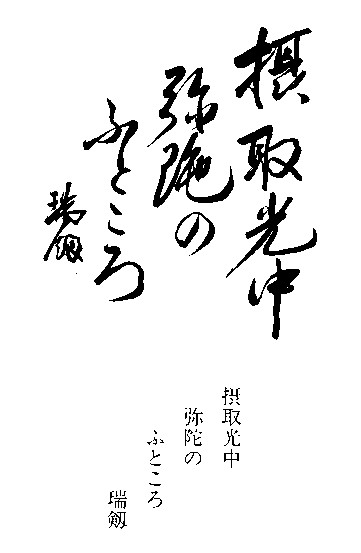 摂取光中
弥陀の
ふところ
瑞剱
摂取光中
弥陀の
ふところ
瑞剱